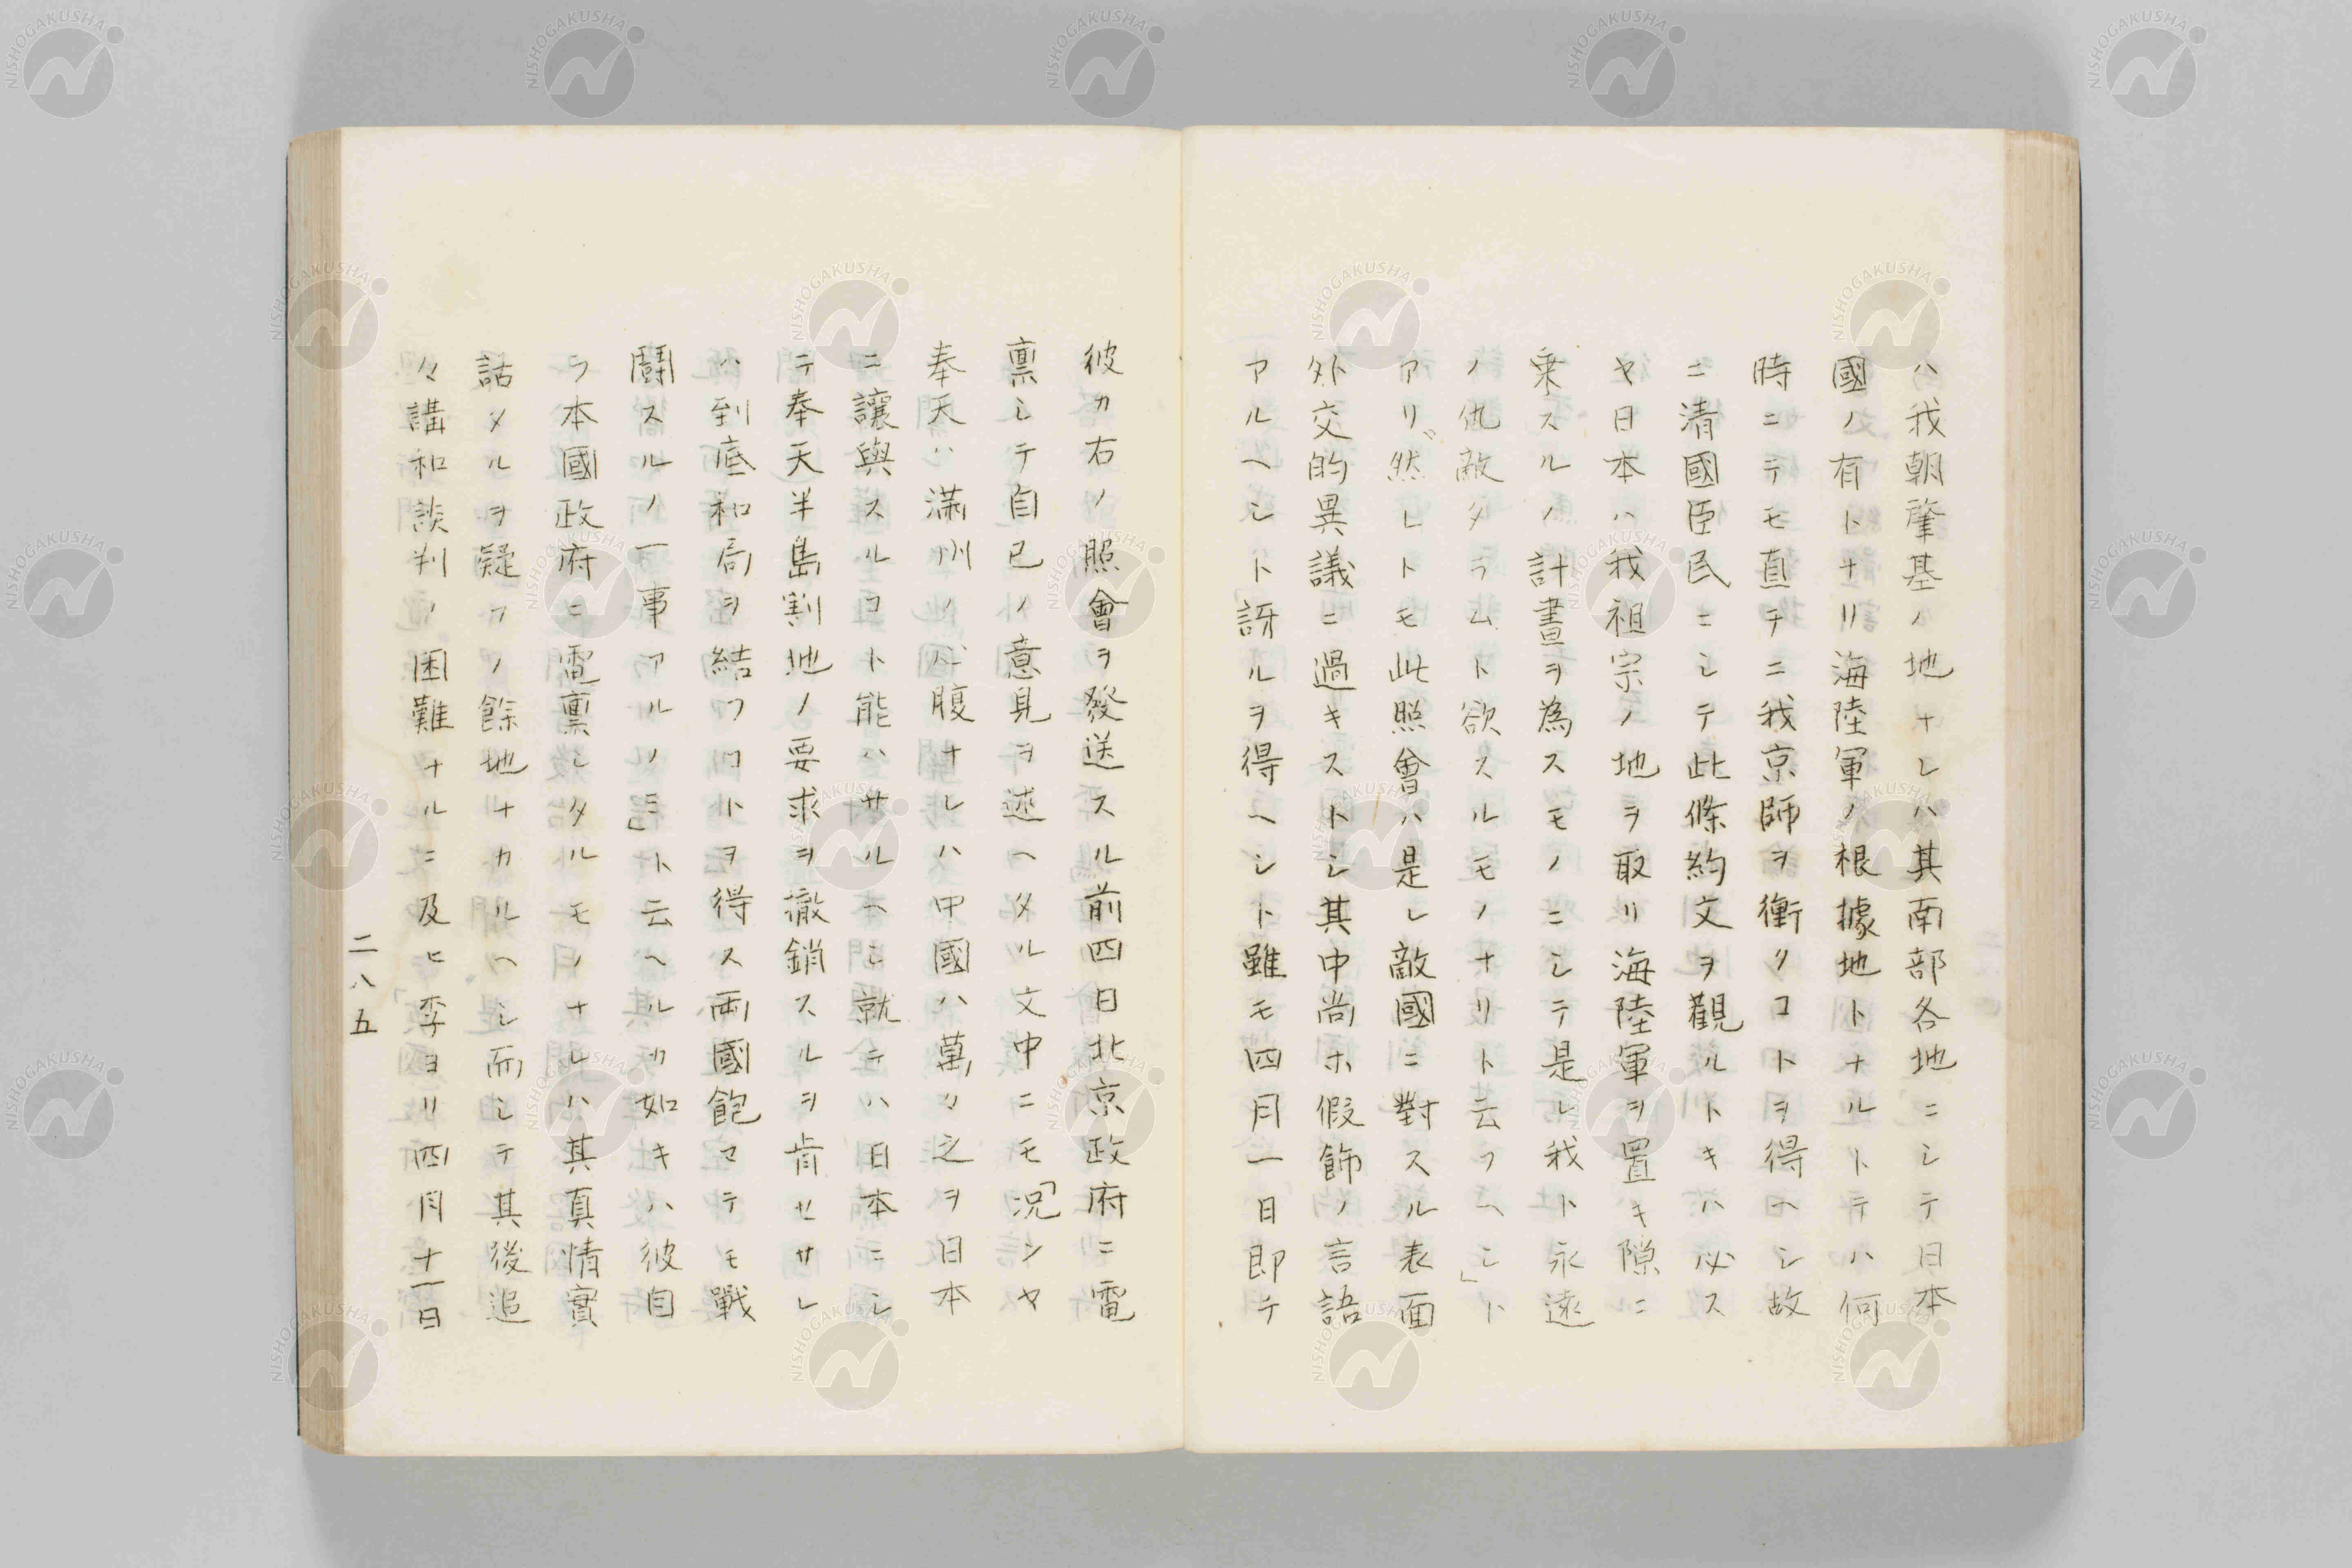 ハ我朝肇基ノ地ナレハ其南部各地ニシテ日本
國ノ有トナリ海陸軍ノ根據地トナルトテハ何
時ニテモ直チニ我京師ヲ衝クコトヲ得ヘシ故
ニ清國臣民ニシテ此條約文ヲ觀ルトキハ必ス
ヤ日本ハ我祖宗ノ地ヲ取リ海陸軍ヲ置キ隙ニ
乗スルノ計畫ヲ為スモノニシテ是レ我ト永遠
ノ仇敵タラムト欲スルモノナリト云フヘシ」ト
アリ然レトモ此照會ハ是レ敵國ニ對スル表面
外交的異議ニ過キストシ其中尚ホ假飾ノ言語
アルヘシト訝ルヲ得ヘシト雖モ四月一日即テ
彼カ右ノ照會ヲ發送スル前四日北京政府ニ電
禀シテ自己ノ意見ヲ述ヘタル文中ニモ「况ンヤ
奉天ハ満州ノ心腹ナレハ中國ハ萬々之ヲ日本
ニ讓與スルコト能ハサルヘシ就テハ日本ニシ
テ奉天半島割地ノ要求ヲ撤銷スルヲ肯セサレ
ハ到底和局ヲ結フコトヲ得ス両國飽マテモ戰
鬪スルノ一事アルノミ」ト云ヘルカ如キハ彼自
ラ本國政府ニ電禀シタルモノナレハ其真情實
話タルヲ疑フノ餘地ナカルヘシ而シテ其後追
々講和談判ノ困難ナルニ及ヒ李ヨリ四月十一日
二八五
NISHOGAKUSHA